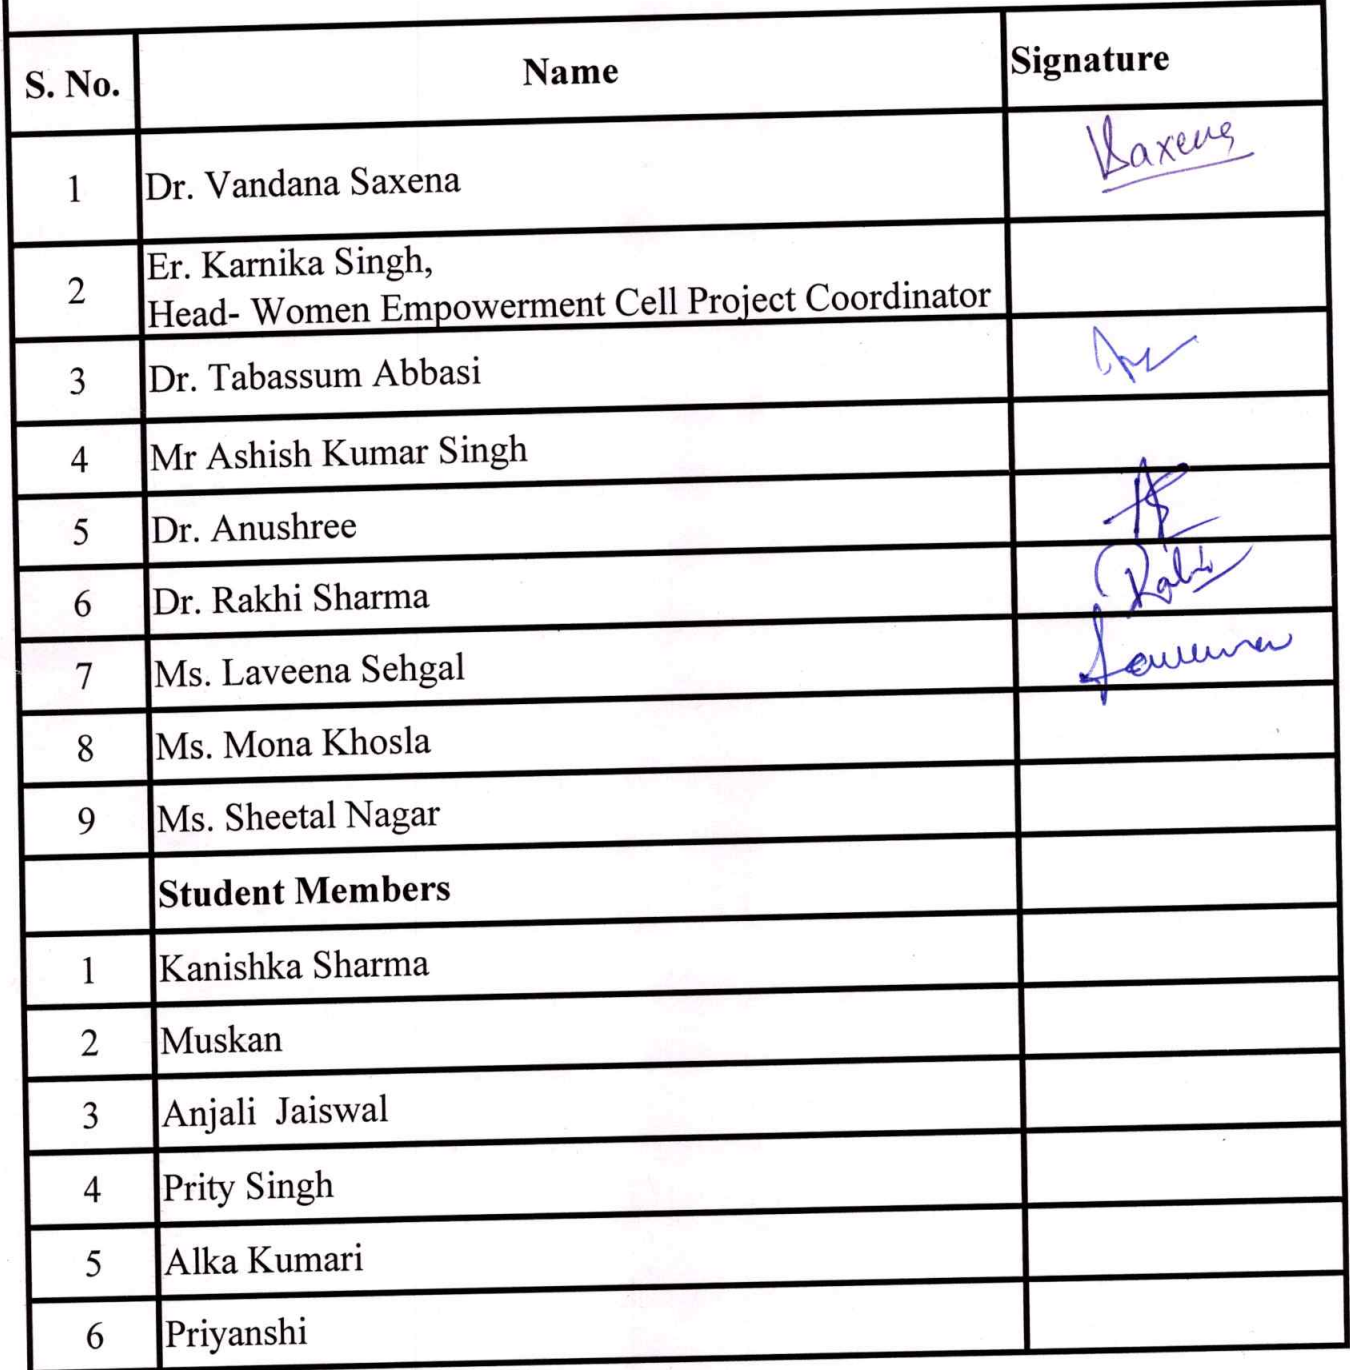 S. No. Name Signature
1 Dr. Vandana Saxena Saxena
2 Er. Karnika Singh,
Head- Women Empowerment Cell Project Coordinator
3 Dr. Tabassum Abbasi
4 Mr Ashish Kumar Singh
5 Dr. Anushree
6 Dr. Rakhi Sharma Rakhi
7 Ms. Laveena Sehgal
8 Ms. Mona Khosla
9 Ms. Sheetal Nagar
Student Members
1 Kanishka Sharma
2 Muskan
3 Anjali Jaiswal
4 Prity Singh
5 Alka Kumari
6 Priyanshi